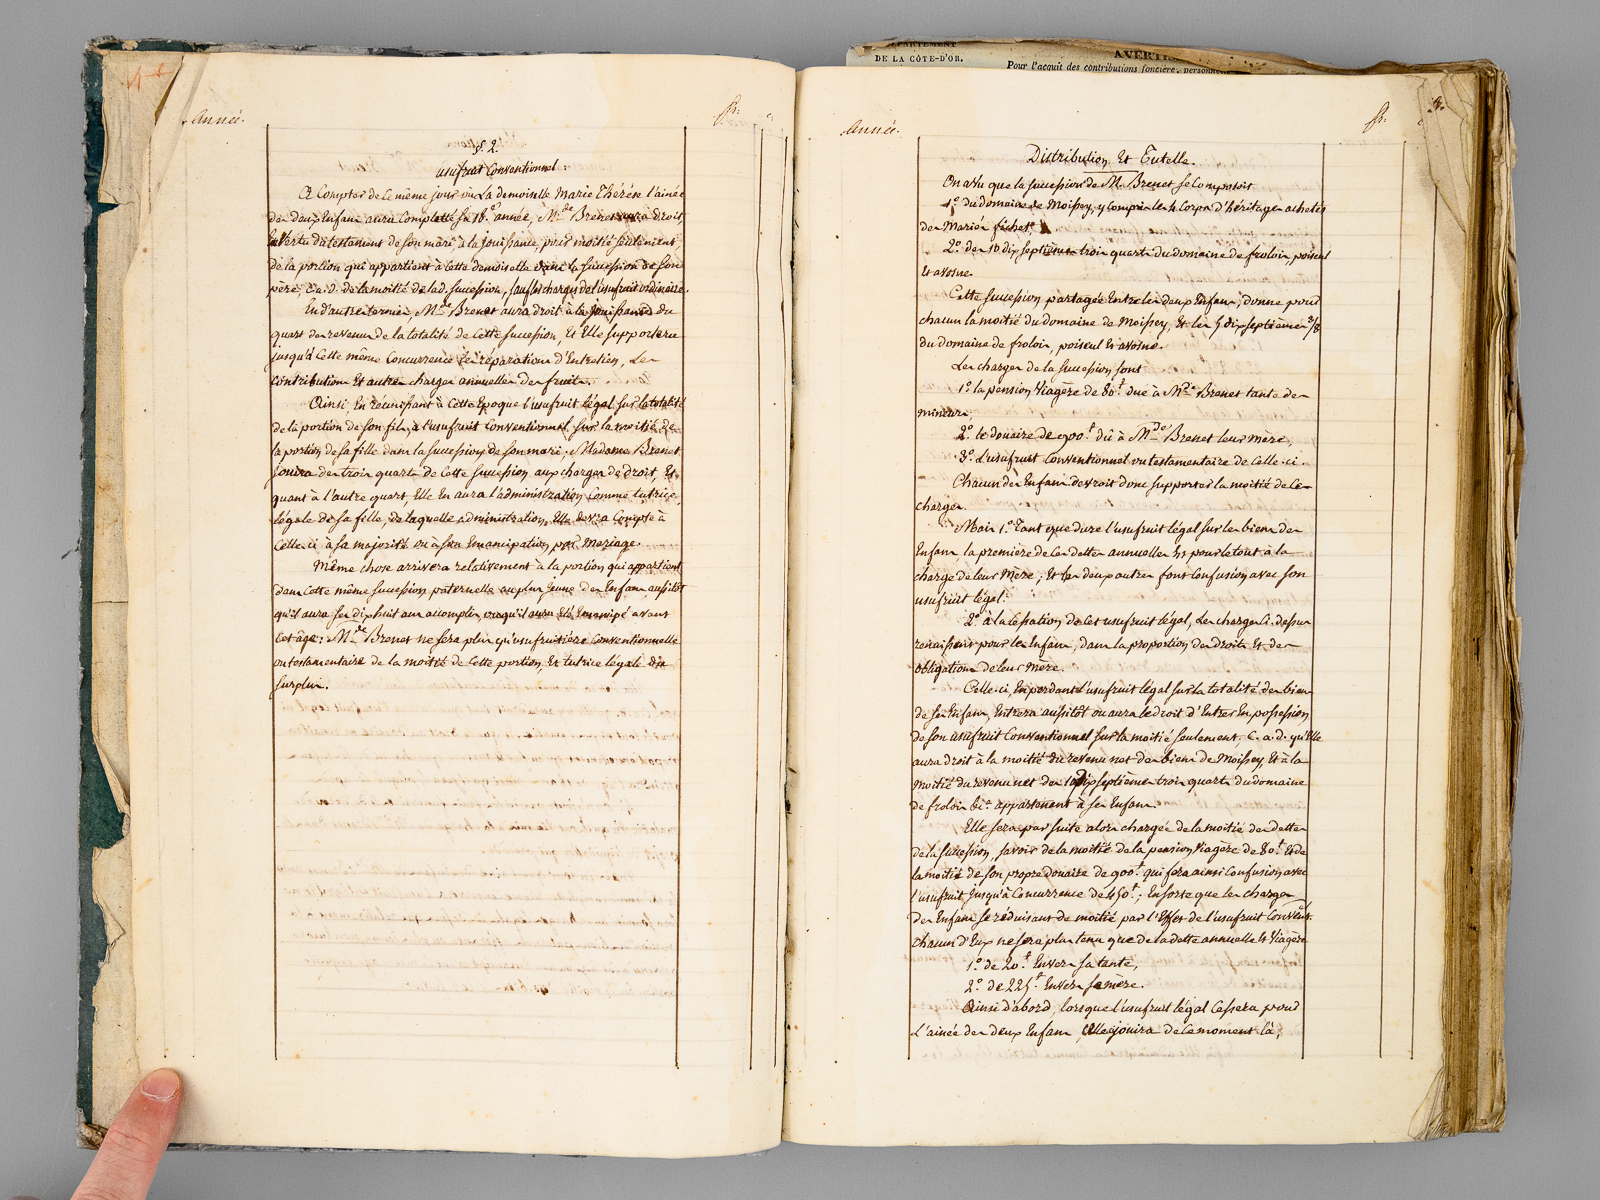 Année.
fr.
c.
§. 2.
usufruit Conventionnel :
A Compter de ce même jour où La demoiselle Marie Thérèse l'ainée
des deux Enfans aura Completté sa 18.e année, M.de Brenet aura droit,
En Vertu du testament de son mari, à la jouissance, pour moitié seulement,
de la portion qui appartient à Cette demoiselle dans la succession de son
père, C. a. d. de la moitié de lad. succession, sauf les charges de l'usufruit ordinaire.
En d'autres termes, M.de Brenet aura droit à la jouissance du
quart des revenus de la totalité de Cette succession, Et Elle supportera
jusqu'à Cette même Concurrence les réparations d'Entretien, Les
Contributions Et autres charges annuelles des fruits.
Ainsi, En réunissant à Cette Epoque l'usufruit légal sur la totalité
de la portion de son fils, à l'usufruit Conventionnel sur la moitié de
la portion de sa fille dans la succession de son mari, Madame Brenet
jouira des trois quarts de Cette succession aux charges de droit, Et
quant à l'autre quart, Elle En aura l'administration Comme tutrice
légale de sa fille, de laquelle administration, Elle devra Compte à
Celle-ci à sa majorité ou à son Emancipation par Mariage.
Même chose arrivera relativement à la portion qui appartient
dans Cette même succession paternelle au plus jeune des Enfans aussitôt
qu'il aura ses dix huit ans accomplis, ou qu'il aura Eté Emancipé avant
Cet âge: M.de Brenet ne sera plus qu'usufruitière Conventionnelle
ou testamentaire de la moitié de Cette portion, Et tutrice légale du
surplus.
DÉPARTEMENT
DE LA CÔTE-D'OR.
AVERTIS
Pour l'acquit des contributions foncière, personn
Année.
fr.
Distribution Et Tutelle.
On a Vu que la succession de M. Brenet se Composoit
1.o du domaine de Moissey, y compris les 4 Corps d'héritages achetés
des Mariés fichet.
2.o des 10 dix septièmes trois quarts du domaine de froloir, poiseul
Et avosne.
Cette succession partagée Entre les deux Enfans, donne pour
chacun la moitié du domaine de Moissey, Et les 5 dix septièmes 3/8
du domaine de froloir, poiseul Et avosne.
Les charges de la succession sont
1.o la pension Viagère de 80.f due à M.lle Brenet tante des
mineurs,
2.o le douaire de 900.f dû à M.de Brenet leur mère,
3.o L'usufruit Conventionnel ou testamentaire de Celle-ci.
Chacun des Enfans devroit donc supporter la moitié de Ces
charges.
Mais 1.o Tant que dure l'usufruit légal sur les biens des
Enfans, la première de Ces dettes annuelles Est pour le tout à la
charge de leur Mère; Et les deux autres font Confusion avec son
usufruit légal.
2.o à la Cessation de Cet usufruit légal, Les charges Ci-dessus
renaissent pour les Enfans, dans la proportion des droits Et des
obligations de leur Mère.
Celle-ci, En perdant l'usufruit légal sur la totalité des biens
de ses Enfans, Entrera aussitôt ou aura le droit d'Entrer En possession
de son usufruit Conventionnel sur la moitié seulement, C. a. d. qu'Elle
aura droit à la moitié du revenu net des biens de Moissey, Et à la
Moitié du revenu net des 10 Dix septièmes trois quarts du domaine
de froloir &.a appartenant à ses Enfans.
Elle sera par suite alors chargée de la moitié des dettes
de la succession, savoir de la moitié de la pension Viagère de 80.f Et de
la moitié de son propre douaire de 900.f qui fera ainsi Confusion avec
l'usufruit jusqu'à Concurrence de 450.f; Ensorte que les charges
des Enfans se réduisant de moitié par l'Effet de l'usufruit Convent.el
chacun d'Eux ne sera plus tenu que de la dette annuelle Et Viagère
1.o de 20.f Envers sa tante,
2.o de 225.f Envers sa mère.
Ainsi d'abord, lorsque l'usufruit légal Cessera pour
L'ainée des deux Enfans, Elle jouira de ce moment là,